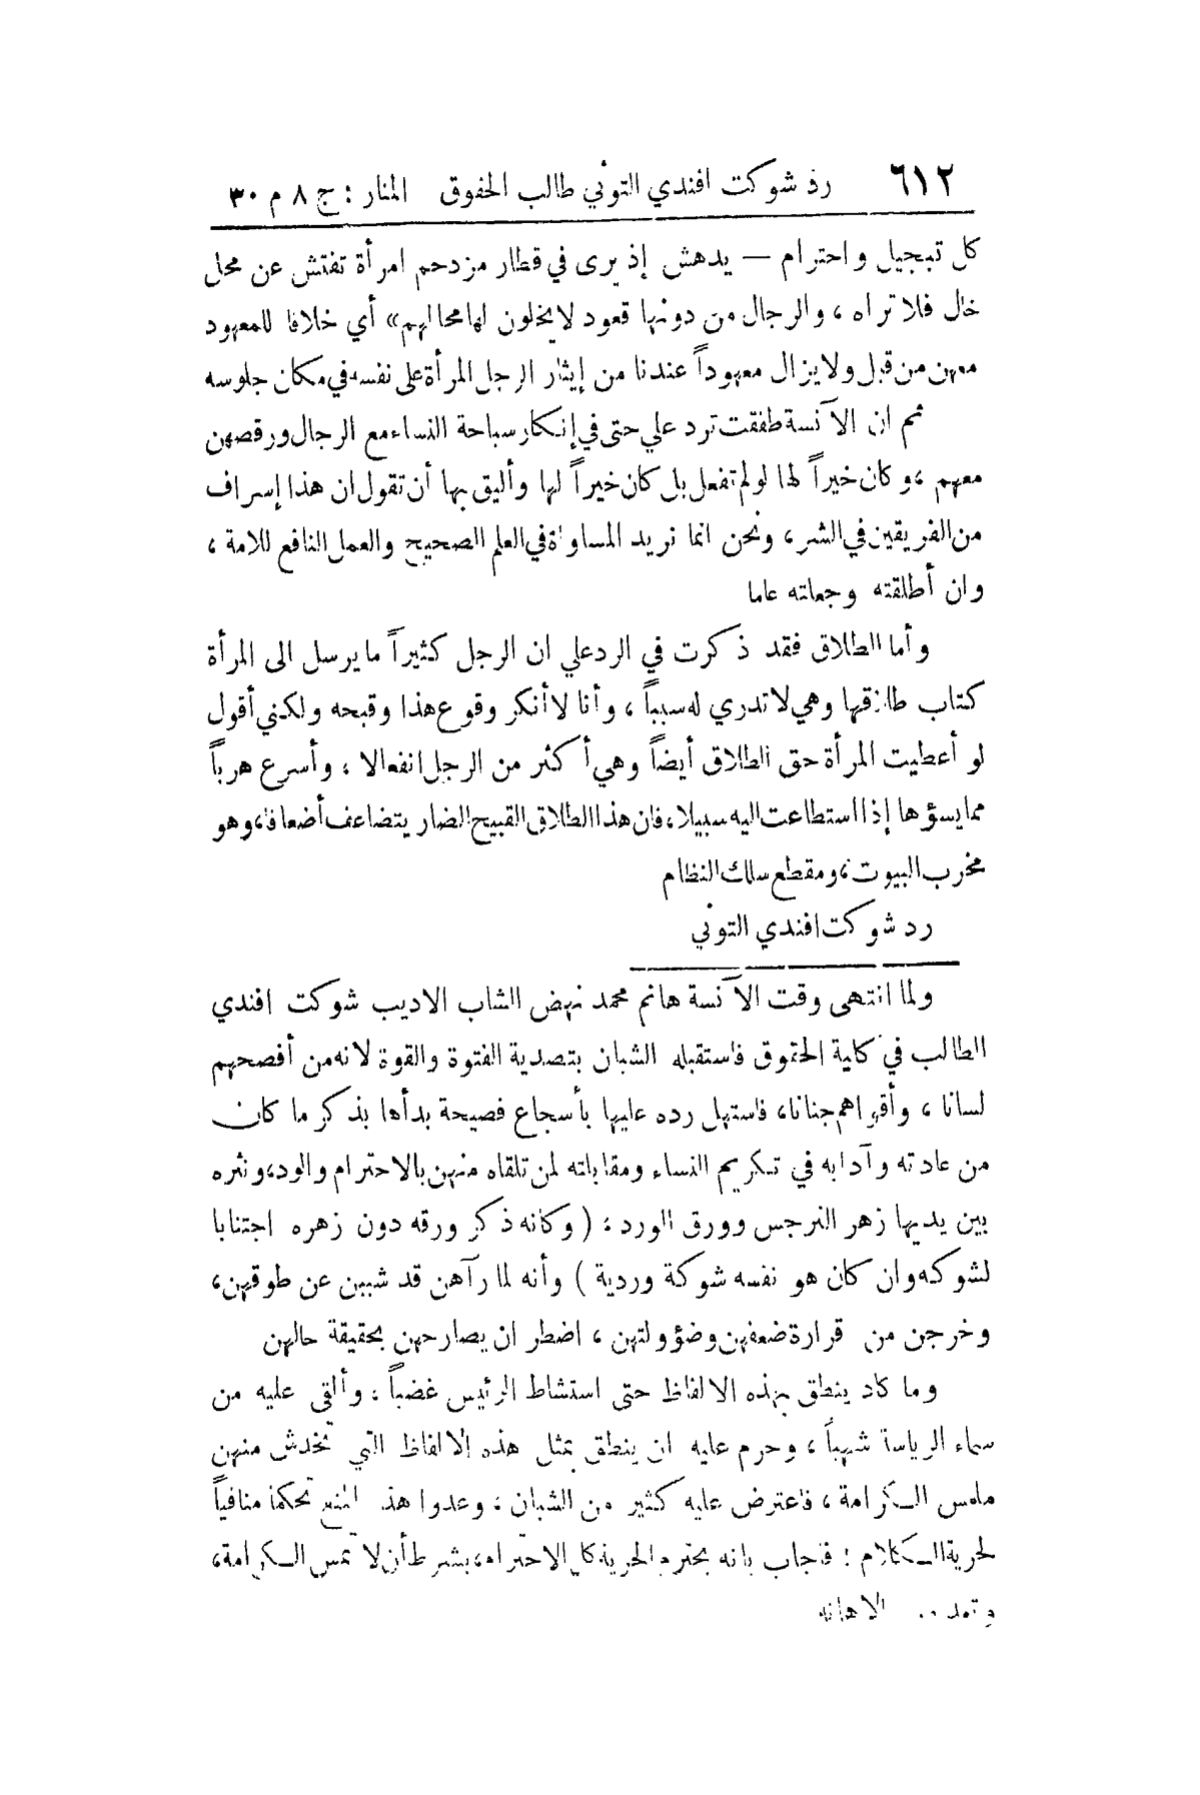 ٦١٢ رد شوكت افندي التوني طالب الحقوق المنار : ج ٨ م ٣٠
كل تبجيل واحترام — يدهش إذ يرى في قطار مزدحم امرأة تفتش عن محل
خال فلا تراه ، والرجال من دونها قعود لا يخلون لها محالهم» أي خلافا للمعهود
منهن من قبل ولا يزال معهوداً عندنا من إيثار الرجل المرأة على نفسه في مكان جلوسه
ثم ان الآنسة طفقت ترد علي حتى في إنكار سباحة النساء مع الرجال ورقصهن
معهم ، وكان خيراً لها لو لم تفعل بل كان خيراً لها وأليق بها أن تقول ان هذا إسراف
من الفريقين في الشر ، ونحن انما نريد المساواة في العلم الصحيح والعمل النافع للامة ،
وان أطلقته وجعلته عاما
وأما الطلاق فقد ذكرت في الرد علي ان الرجل كثيراً ما يرسل الى المرأة
كتاب طلاقها وهي لا تدري له سبباً ، وأنا لا أنكر وقوع هذا وقبحه ولكني أقول
لو أعطيت المرأة حق الطلاق أيضاً وهي أكثر من الرجل انفعالا ، وأسرع هرباً
مما يسؤها إذا استطاعت اليه سبيلا ، فان هذا الطلاق القبيح الضار يتضاعف أضعافا ، وهو
مخرب البيوت ، ومقطع سلك النظام
رد شوكت افندي التوني
ولما انتهى وقت الآنسة هانم محمد نهض الشاب الاديب شوكت افندي
الطالب في كلية الحقوق فاستقبله الشبان بتصدية الفتوة والقوة لانه من أفصحهم
لسانا ، وأقواهم جنانا ، فاستهل رده عليها بأسجاع فصيحة بدأها بذكر ما كان
من عادته وآدابه في تكريم النساء ومقابلته لمن تلقاه منهن بالاحترام والود ، ونثره
بين يديها زهر النرجس وورق الورد ، ( وكانه ذكر ورقه دون زهره اجتنابا
لشوكه وان كان هو نفسه شوكة وردية ) وأنه لما رآهن قد شببن عن طوقهن ،
وخرجن من قرارة ضعفهن وضؤولتهن ، اضطر ان يصارحهن بحقيقة حالهن
وما كاد ينطق بهذه الالفاظ حتى استشاط الرئيس غضباً ، وألقى عليه من
سماء الرياسة شهباً ، وحرم عليه ان ينطق بمثل هذه الالفاظ التي تخدش منهن
ملمس الكرامة ، فاعترض عليه كثير من الشبان ، وعدوا هذا المنع تحكما منافياً
لحرية الكلام ؛ فاجاب بانه يحترم الحرية كل الاحترام ، بشرط أن لا تمس الكرامة ،
الاهانة